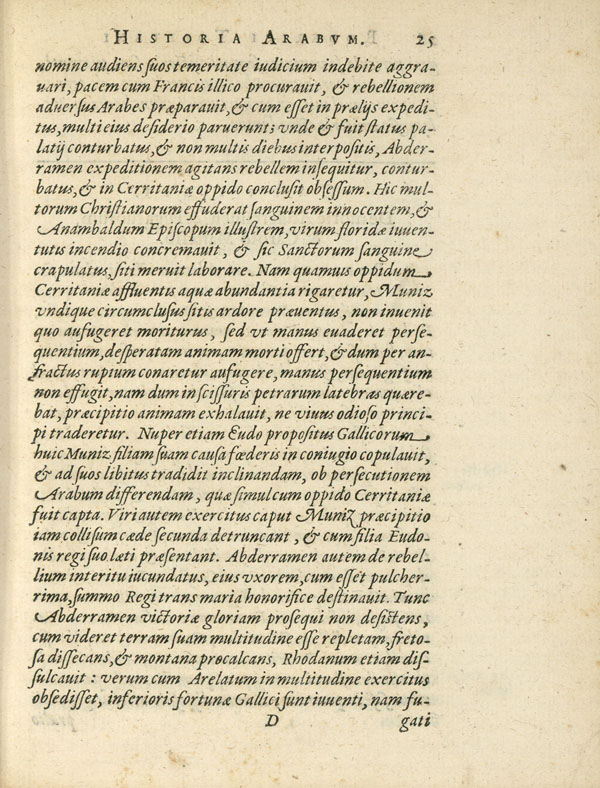 HISTORIA ARABVM. 25
nomine audiens suos temeritate iudicium indebite aggra-
uari, pacem cum Francis illico procurauit, & rebellionem
aduersus Arabes præparauit, & cum esset in prælijs expedi-
tus, multi eius desiderio paruerunt: vnde & fuit status pa-
latij conturbatus, & non multis diebus interpositis, Abder-
ramen expeditionem agitans rebellem insequitur, contur-
batus, & in Cerritaniæ oppido conclusit obsessum. Hic mul-
torum Christianorum effuderat sanguinem innocentem, &
Anambaldum Episcopum illustrem, virum floridæ iuuen-
tutis incendio concremauit, & sic Sanctorum sanguine
crapulatus, siti meruit laborare. Nam quamuis oppidum
Cerritaniæ affluentis aquæ abundantia rigaretur, Muniz
vndique circumclusus sitis ardore præuentus, non inuenit
quo aufugeret moriturus, sed vt manus euaderet perse-
quentium, desperatam animam morti offert, & dum per an-
fractus rupium conaretur aufugere, manus persequentium
non effugit, nam dum in scissuris petrarum latebras quære-
bat, præcipitio animam exhalauit, ne viuus odioso princi-
pi traderetur. Nuper etiam Eudo propositus Gallicorum
huic Muniz filiam suam causa fæderis in coniugio copulauit,
& ad suos libitus tradidit inclinandam, ob persecutionem
Arabum differendam, quæ simul cum oppido Cerritaniæ
fuit capta. Viri autem exercitus caput Muniz præcipitio
iam collisum cæde secunda detruncant, & cum filia Eudo-
nis regi suo læti præsentant. Abderramen autem de rebel-
lium interitu iucundatus, eius vxorem, cum esset pulcher-
rima, summo Regi trans maria honorifice destinauit. Tunc
Abderramen victoriæ gloriam prosequi non desistens,
cum videret terram suam multitudine esse repletam, freto-
sa dissecans, & montana procalcans, Rhodanum etiam dis-
sulcauit: verum cum Arelatum in multitudine exercitus
obsedisset, inferioris fortunæ Gallici sunt iuuenti, nam fu-
D gati